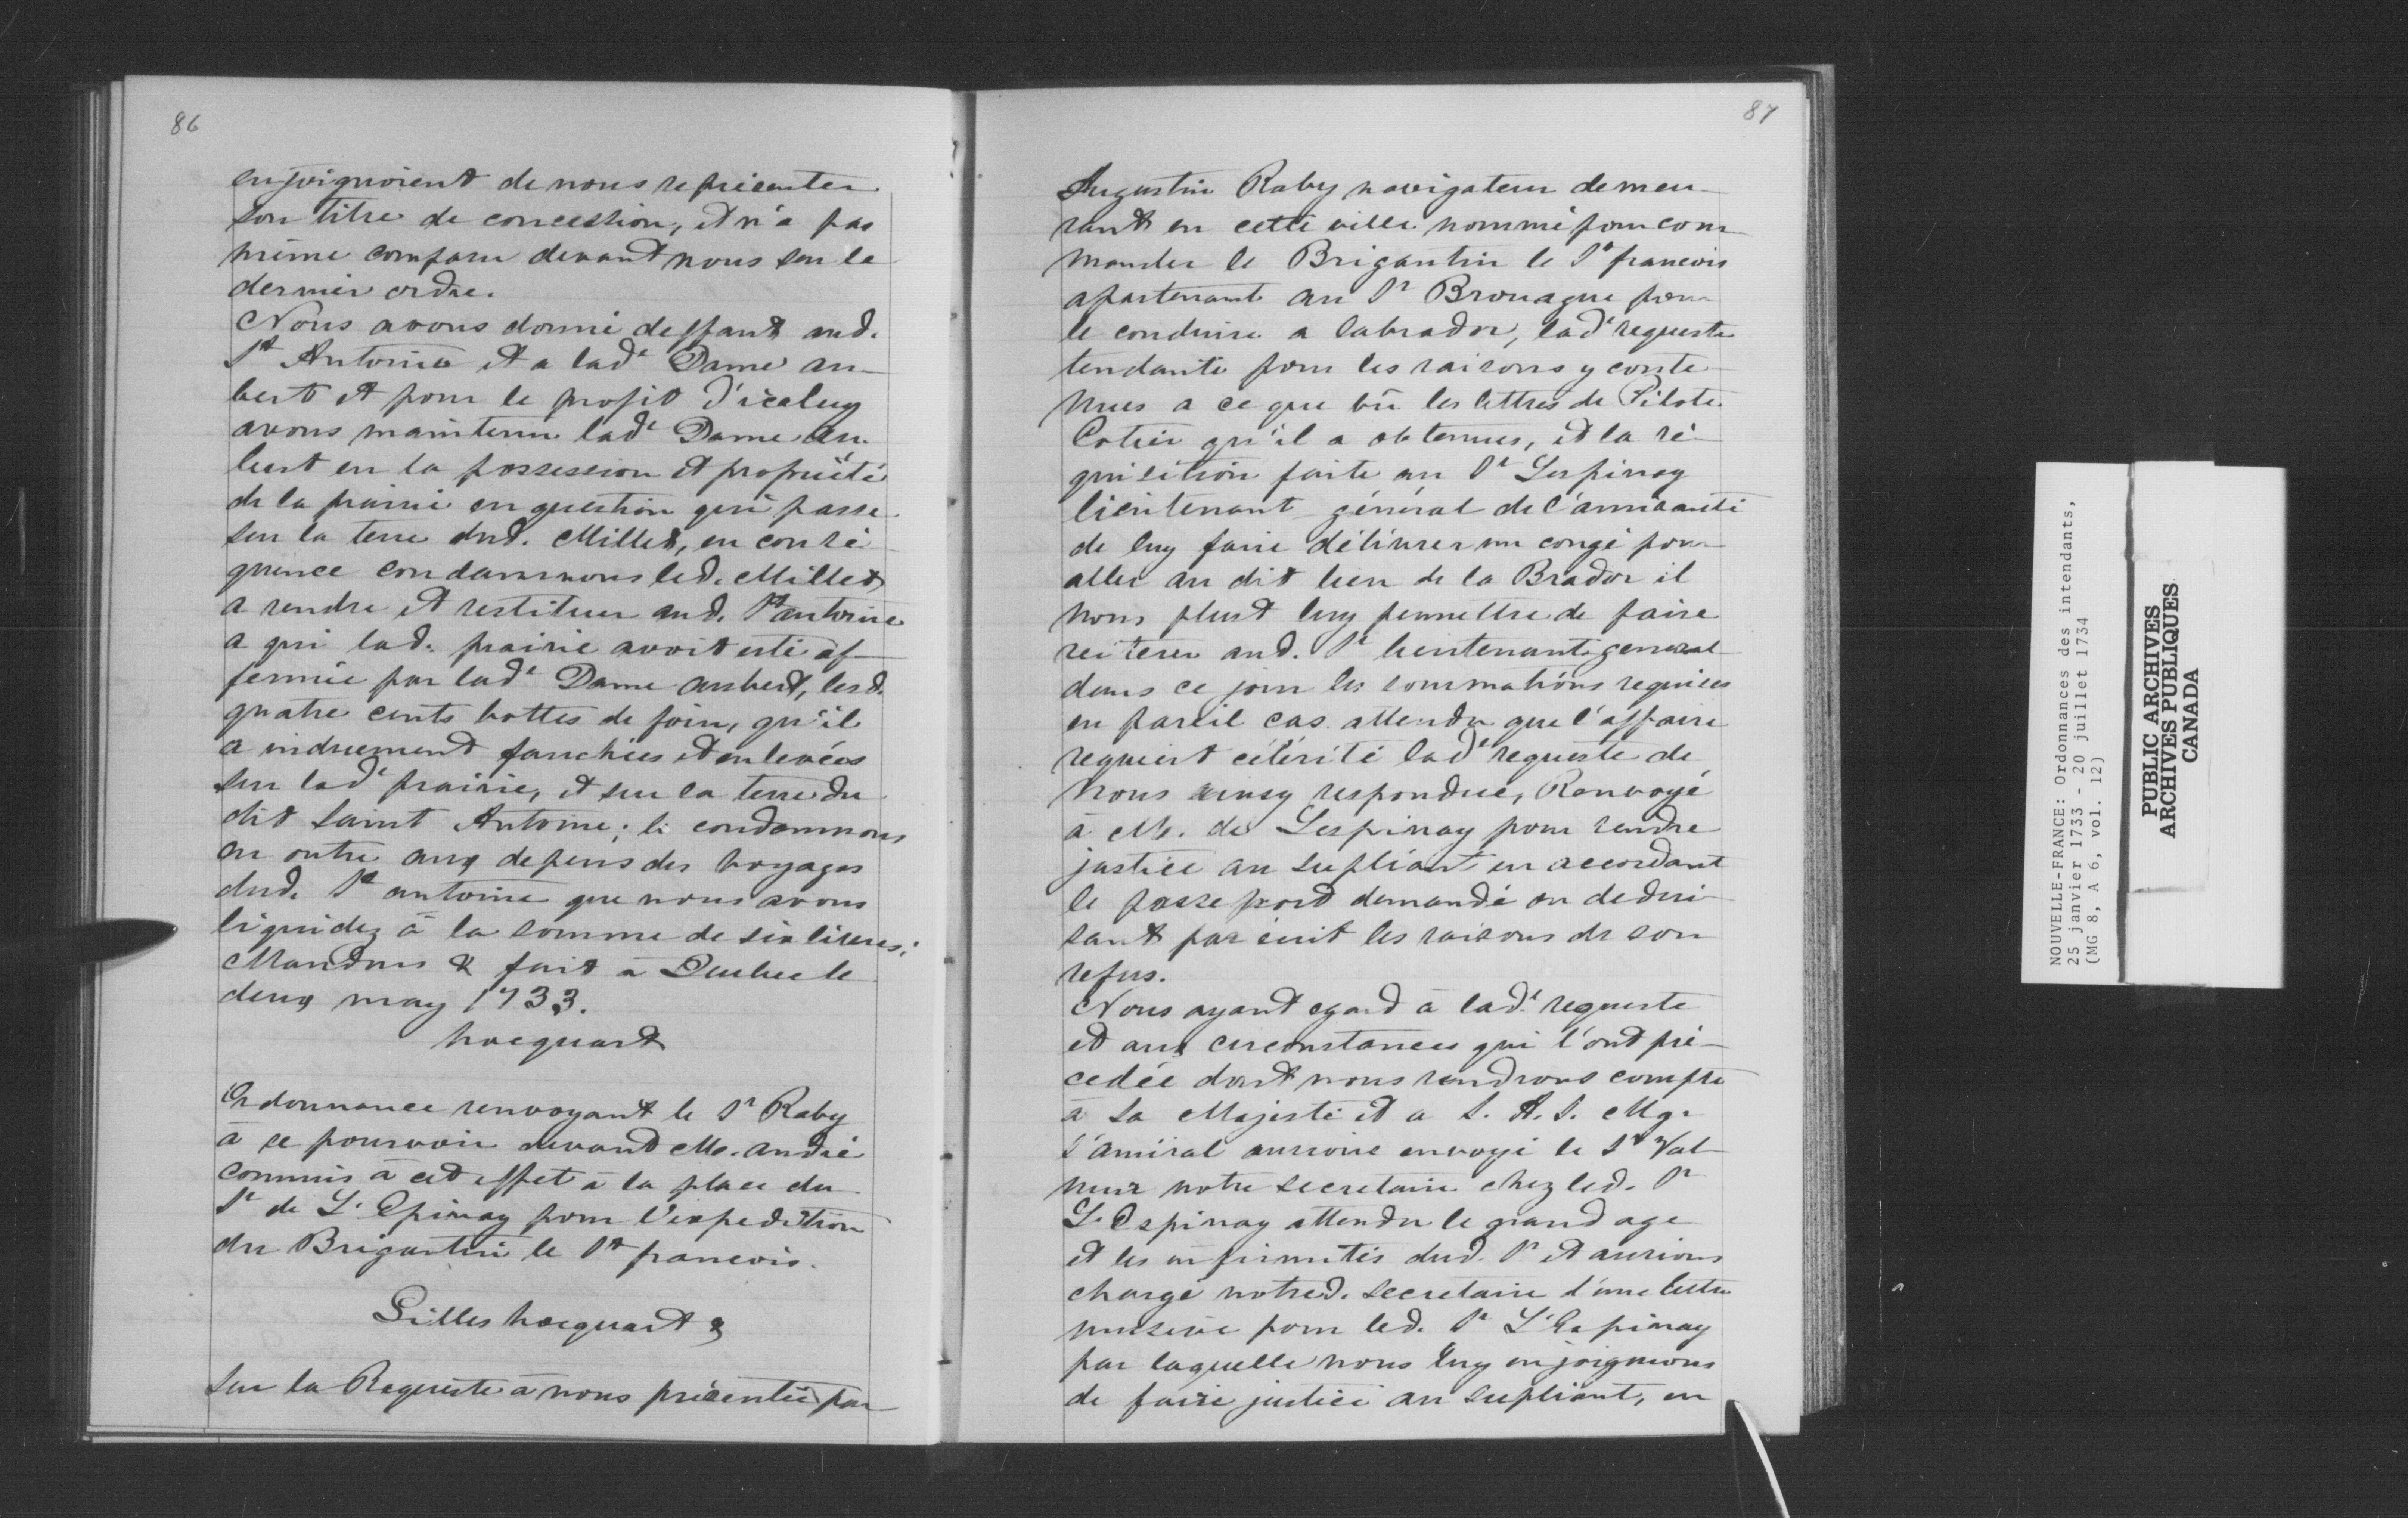 86
enjoignoient de nous représenter
son titre de concession, et n'a pas
même comparu devant nous sur le
dernier ordre.
Nous avons donné deffaut aud.
St Antoine et a lade Dame au-
bert et pour le profit d'iceluy
avons maintenu lade Dame Au-
bert en la possession et propriété
de la prairie en question qui passe
sur la terre dud. Millet, en consé-
quence condamnons led. Millet
a rendre et restituer aud. St antoine
a qui lad. prairie avoit esté af-
fermée par lade Dame aubert, lesd.
quatre cents bottes de foin, qu'il
a induement fauchées et enlevées
sur lade prairie, et sur la terre du
dit Saint Antoine; le condamnons
en outre aux depens des voyages
dud. St antoine que nous avons
liquidez à la somme de six livres;
Mandons & fait à Quebec le
deux may 1733.
hocquart
Ordonnance renvoyant le Sr Raby
à se pourvoir devant Me. André
commis à cet effet à la place du
Sr de L'Epinay pour l'expedition
du Brigantin le St francois.
Gilles hocquart &
Sur la Requeste à nous présentée par
87
Augustin Raby navigateur demeu-
rant en cette ville nommé pour com-
mander le Brigantin le St francois
apartenant au Sr Brouague pour
le conduire a labrador, lade requeste
tendante pour les raisons y conte-
nues a ce que vû les lettres de Pilote
Cotier qu'il a obtenues, et la ré-
quisition faite au Sr Lespinay
lieutenant général de l'amirauté
de luy faire délivrer un congé pour
aller au dit lieu de la Brador il
nous plust luy permettre de faire
reiterer aud. Sr lieutenant general
dans ce jour les sommations requises
en pareil cas attendu que l'affaire
requiert célérité lade requeste de
Nous ainsy respondue, Renvoyé
à Me. de Lespinay pour rendre
justice au supliant en accordant
le passe port demandé ou dedui-
sant par écrit les raisons de son
refus.
Nous ayant egard à lade requeste
et aux circonstances qui l'ont pré-
cedée dont nous rendrons compte
à Sa Majesté et a S. A. S. Mgr
l'amiral aurions envoyé le Sr Val-
neur notre secretaire chez led. Sr
L'Espinay attendu le grand age
et les infirmités dud. Sr et aurions
chargé notred. secretaire d'une lettre
missive pour led. Sr L'Espinay
par laquelle nous luy enjoignions
de faire justice au supliant, en
NOUVELLE-FRANCE: Ordonnances des intendants,
25 janvier 1733 - 20 juillet 1734
(MG 8, A 6, vol. 12)
PUBLIC ARCHIVES
ARCHIVES PUBLIQUES
CANADA